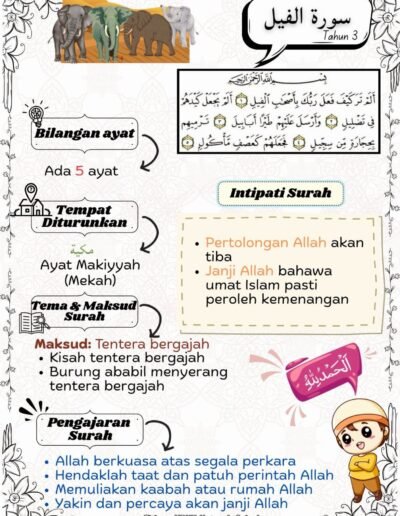 سورة الفيل
Tahun 3
بِسْمِ اللَّهِ الرَّحْمَٰنِ الرَّحِيمِ
أَلَمْ تَرَ كَيْفَ فَعَلَ رَبُّكَ بِأَصْحَٰبِ الْفِيلِ ١ أَلَمْ يَجْعَلْ كَيْدَهُمْ
فِي تَضْلِيلٍ ٢ وَأَرْسَلَ عَلَيْهِمْ طَيْرًا أَبَابِيلَ ٣ تَرْمِيهِم
بِحِجَارَةٍ مِّن سِجِّيلٍ ٤ فَجَعَلَهُمْ كَعَصْفٍ مَّأْكُولٍ ٥
Bilangan ayat
Ada 5 ayat
Tempat
Diturunkan
مكية
Ayat Makiyyah
(Mekah)
Intipati Surah
Pertolongan Allah akan
tiba
Janji Allah bahawa
umat Islam pasti
peroleh kemenangan
Tema & Maksud
Surah
Maksud: Tentera bergajah
Kisah tentera bergajah
Burung ababil menyerang
tentera bergajah
اَلْحَمْدُلِلّٰهِ
Pengajaran
Surah
Allah berkuasa atas segala perkara
Hendaklah taat dan patuh perintah Allah
Memuliakan kaabah atau rumah Allah
Yakin dan percaya akan janji Allah